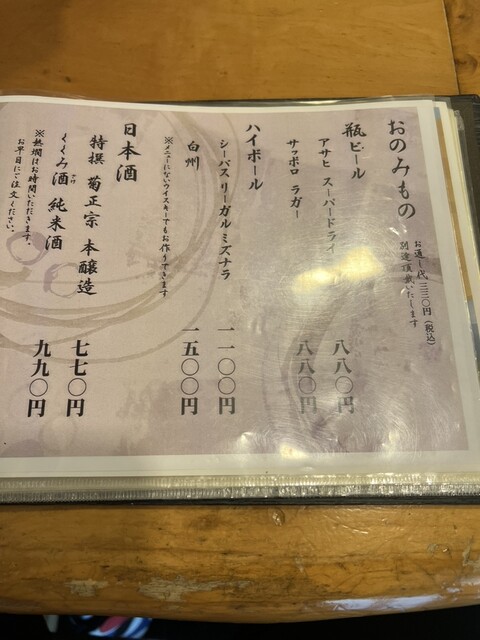 おのみもの
お通し代 三三〇円(税込)
別途頂戴いたします
瓶ビール
アサヒ スーパードライ 八八〇円
サッポロ ラガー 八八〇円
ハイボール
シーバスリーガルミズナラ 一一〇〇円
白州 一五〇〇円
※メニューにないウイスキーでもお作りできます
日本酒
特撰 菊正宗 本醸造 七七〇円
くくみ酒 純米酒 九九〇円
※熱燗はお時間いただきます。
お早目にご注文ください。